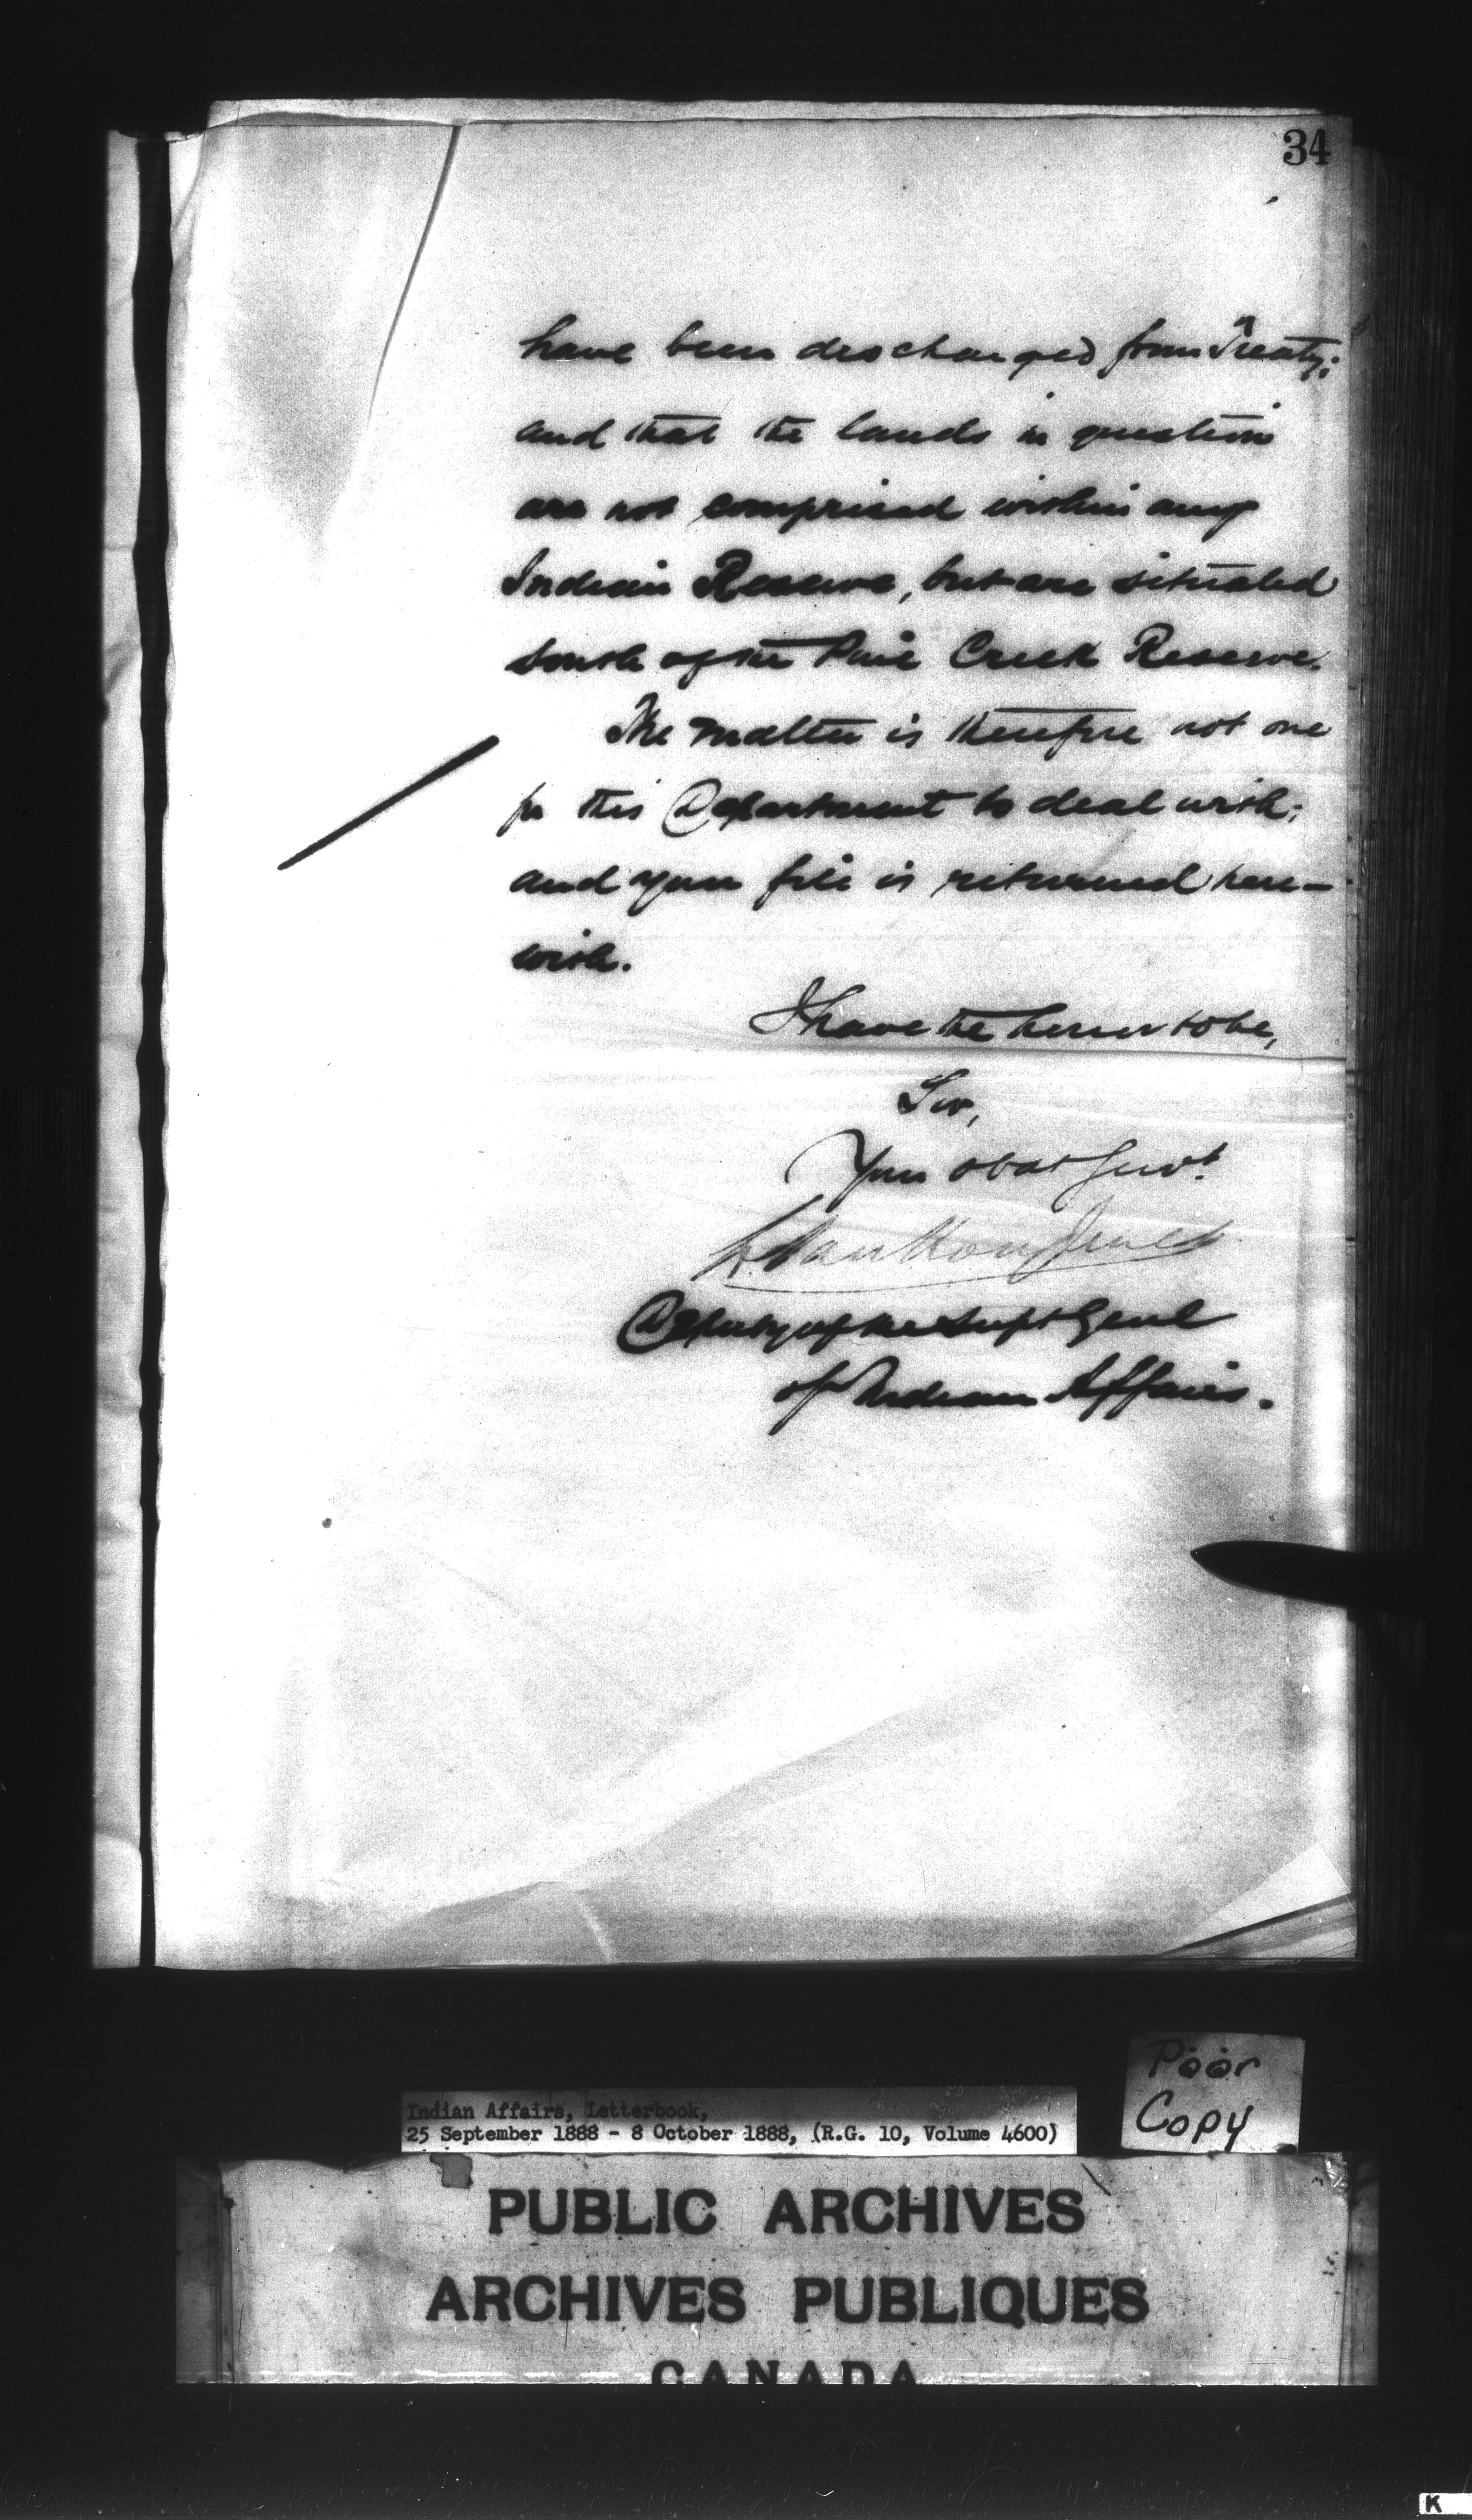 34
have been discharged from Treaty;
and that the lands in question
are not comprised within any
Indian Reserve, but are situated
south of the Pine Creek Reserve.
The matter is therefore not one
for this Department to deal with;
and your file is returned here-
with.
I have the honor to be,
Sir,
Your obdt Servt
L. Vankoughnet
Deputy of the Supt Genl
of Indian Affairs.
Poor
Copy
Indian Affairs, Letterbook,
25 September 1888 - 8 October 1888, (R.G. 10, Volume 4600)
PUBLIC ARCHIVES
ARCHIVES PUBLIQUES
CANADA
K